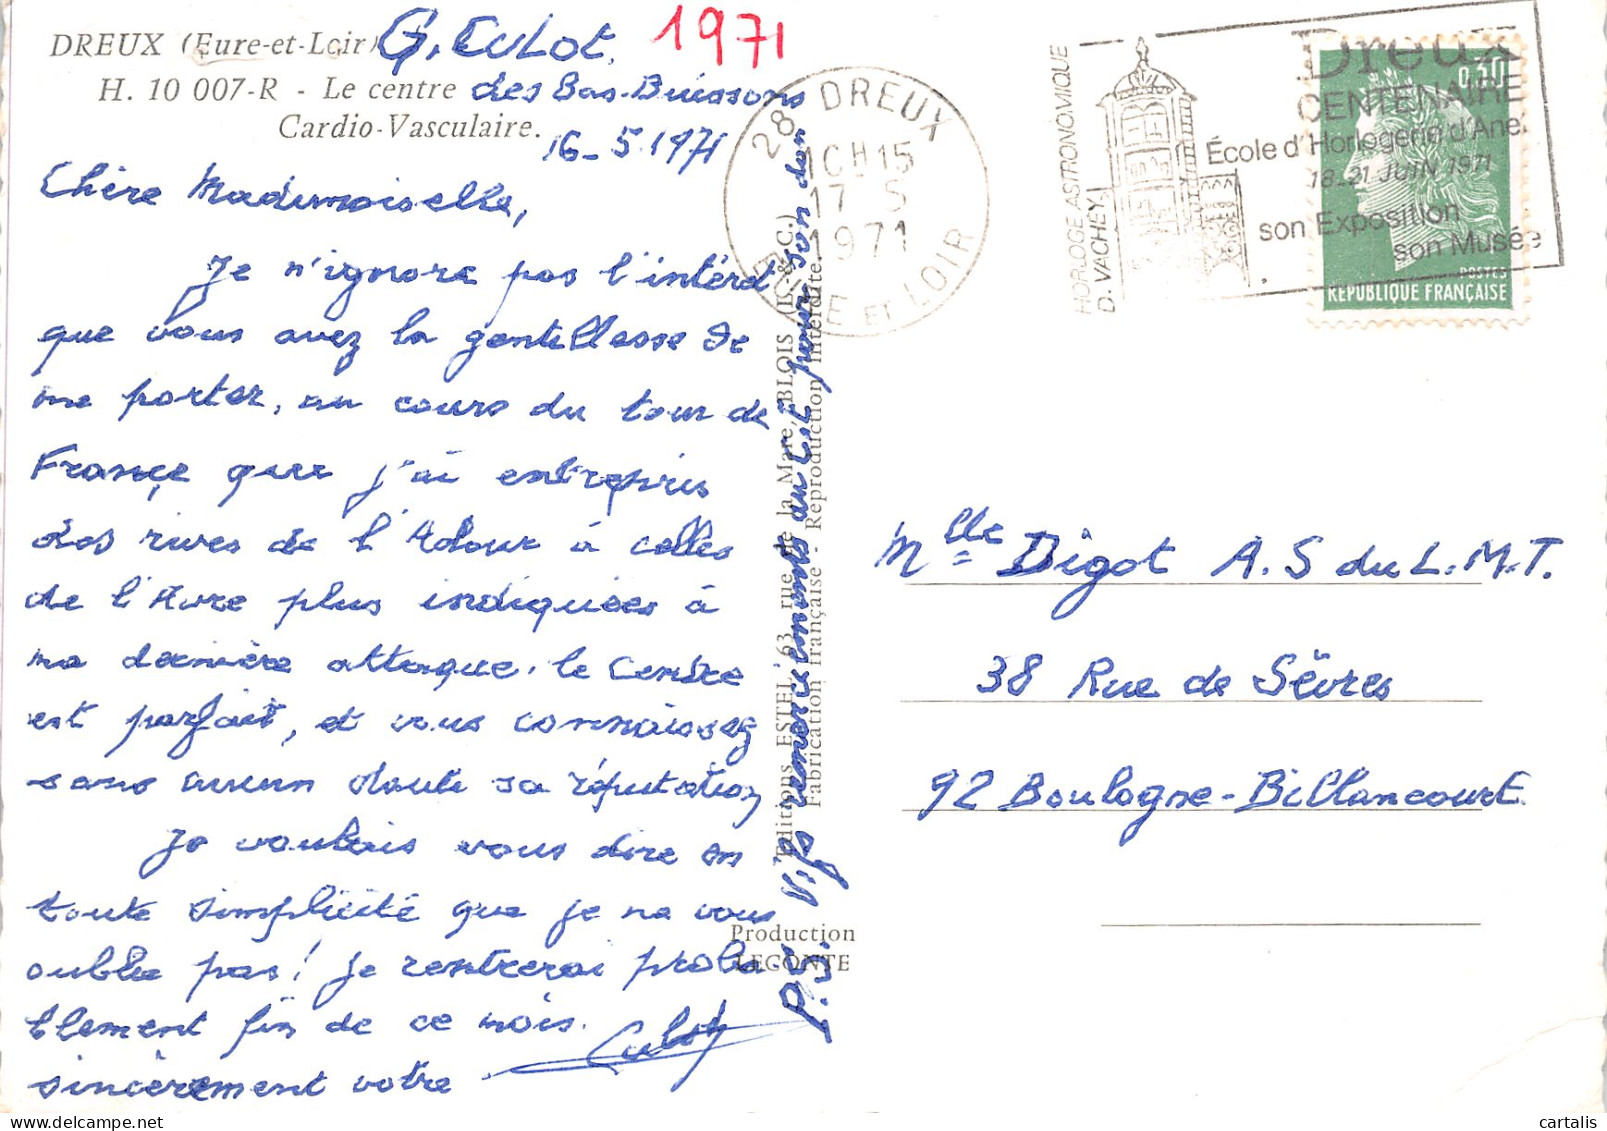 DREUX (Eure-et-Loir) G. Culot. 1971
H. 10 007-R - Le centre des Bas-Buissons
Cardio-Vasculaire.
16-5.1971
Chère Mademoiselle,
Je n'ignore pas l'intérêt
que vous avez la gentillesse de
me porter, au cours du tour de
France que j'ai entrepris
des rives de l'Adour à celles
de l'Avre plus indiquées à
ma dernière attaque. Le Centre
est parfait, et vous connaissez
sans aucun doute sa réputation
Je voulais vous dire en
toute simplicité que je ne vous
oublie pas! Je rentrerai proba-
blement fin de ce mois.
Sincèrement votre Culot
P.S. remerciements au Cit pour son don
Editions ESTEL, 63, rue de la Mare, BLOIS (L.-&-C.)
Fabrication française - Reproduction interdite.
Production
LECONTE
28 DREUX
10H15
17-5
1971
EURE ET LOIR
HORLOGE ASTRONOMIQUE
D. VACHEY
Dreux
CENTENAIRE
École d'Horlogerie d'Anet
18-21 JUIN 1971
son Exposition
son Musée
0,30
POSTES
REPUBLIQUE FRANÇAISE
Mlle Digot A.S du L.M.T.
38 Rue de Sèvres
92 Boulogne-Billancourt
cartalis
delcampe.net